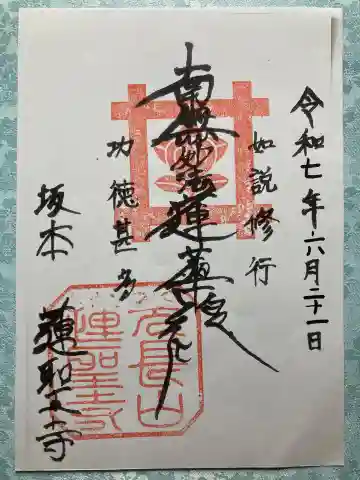 令和七年六月二十一日
如説修行
南無妙法蓮華経
功徳甚多
坂本
蓮聖寺
久長山
蓮聖寺